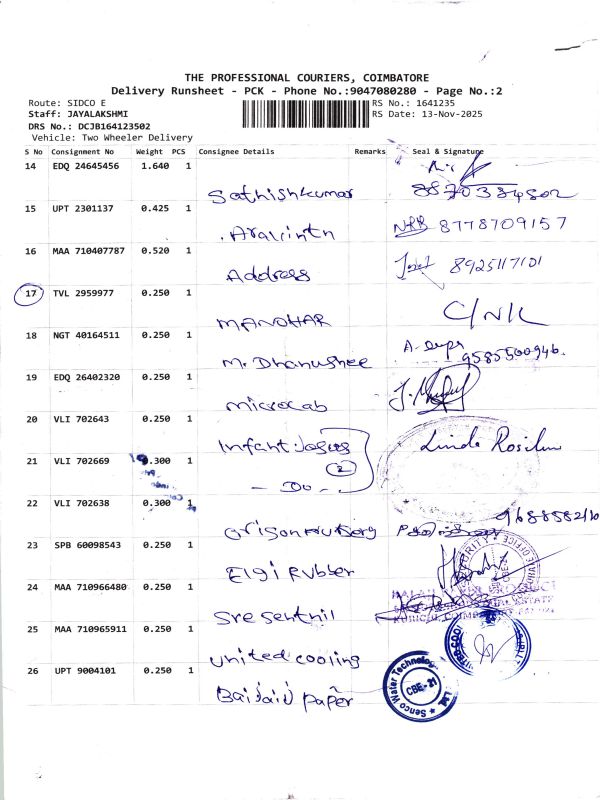 THE PROFESSIONAL COURIERS, COIMBATORE
Delivery Runsheet - PCK - Phone No.:9047080280 - Page No.:2
Route: SIDCO E
RS No.: 1641235
Staff: JAYALAKSHMI
RS Date: 13-Nov-2025
DRS No.: DCJB164123502
Vehicle: Two Wheeler Delivery
S No Consignment No Weight PCS Consignee Details Remarks Seal & Signature
14 EDQ 24645456 1.640 1
Sathishkumar 8870384502
15 UPT 2301137 0.425 1
Aravinth 8778709157
16 MAA 710407787 0.520 1
Address 8925117101
17 TVL 2959977 0.250 1
MANOHAR C/NK
18 NGT 40164511 0.250 1
M. Dhanushee 9585500946.
19 EDQ 26402320 0.250 1
microlab
20 VLI 702643 0.250 1
Infant Josus Linda
21 VLI 702669 0.300 1
2
- Do -
22 VLI 702638 0.300 1
23 SPB 60098543 0.250 1
Elgi Rubber
24 MAA 710966480 0.250 1
Sre Senthil
25 MAA 710965911 0.250 1
United cooling
26 UPT 9004101 0.250 1
paper
Senco Water Technology
CBE - 21